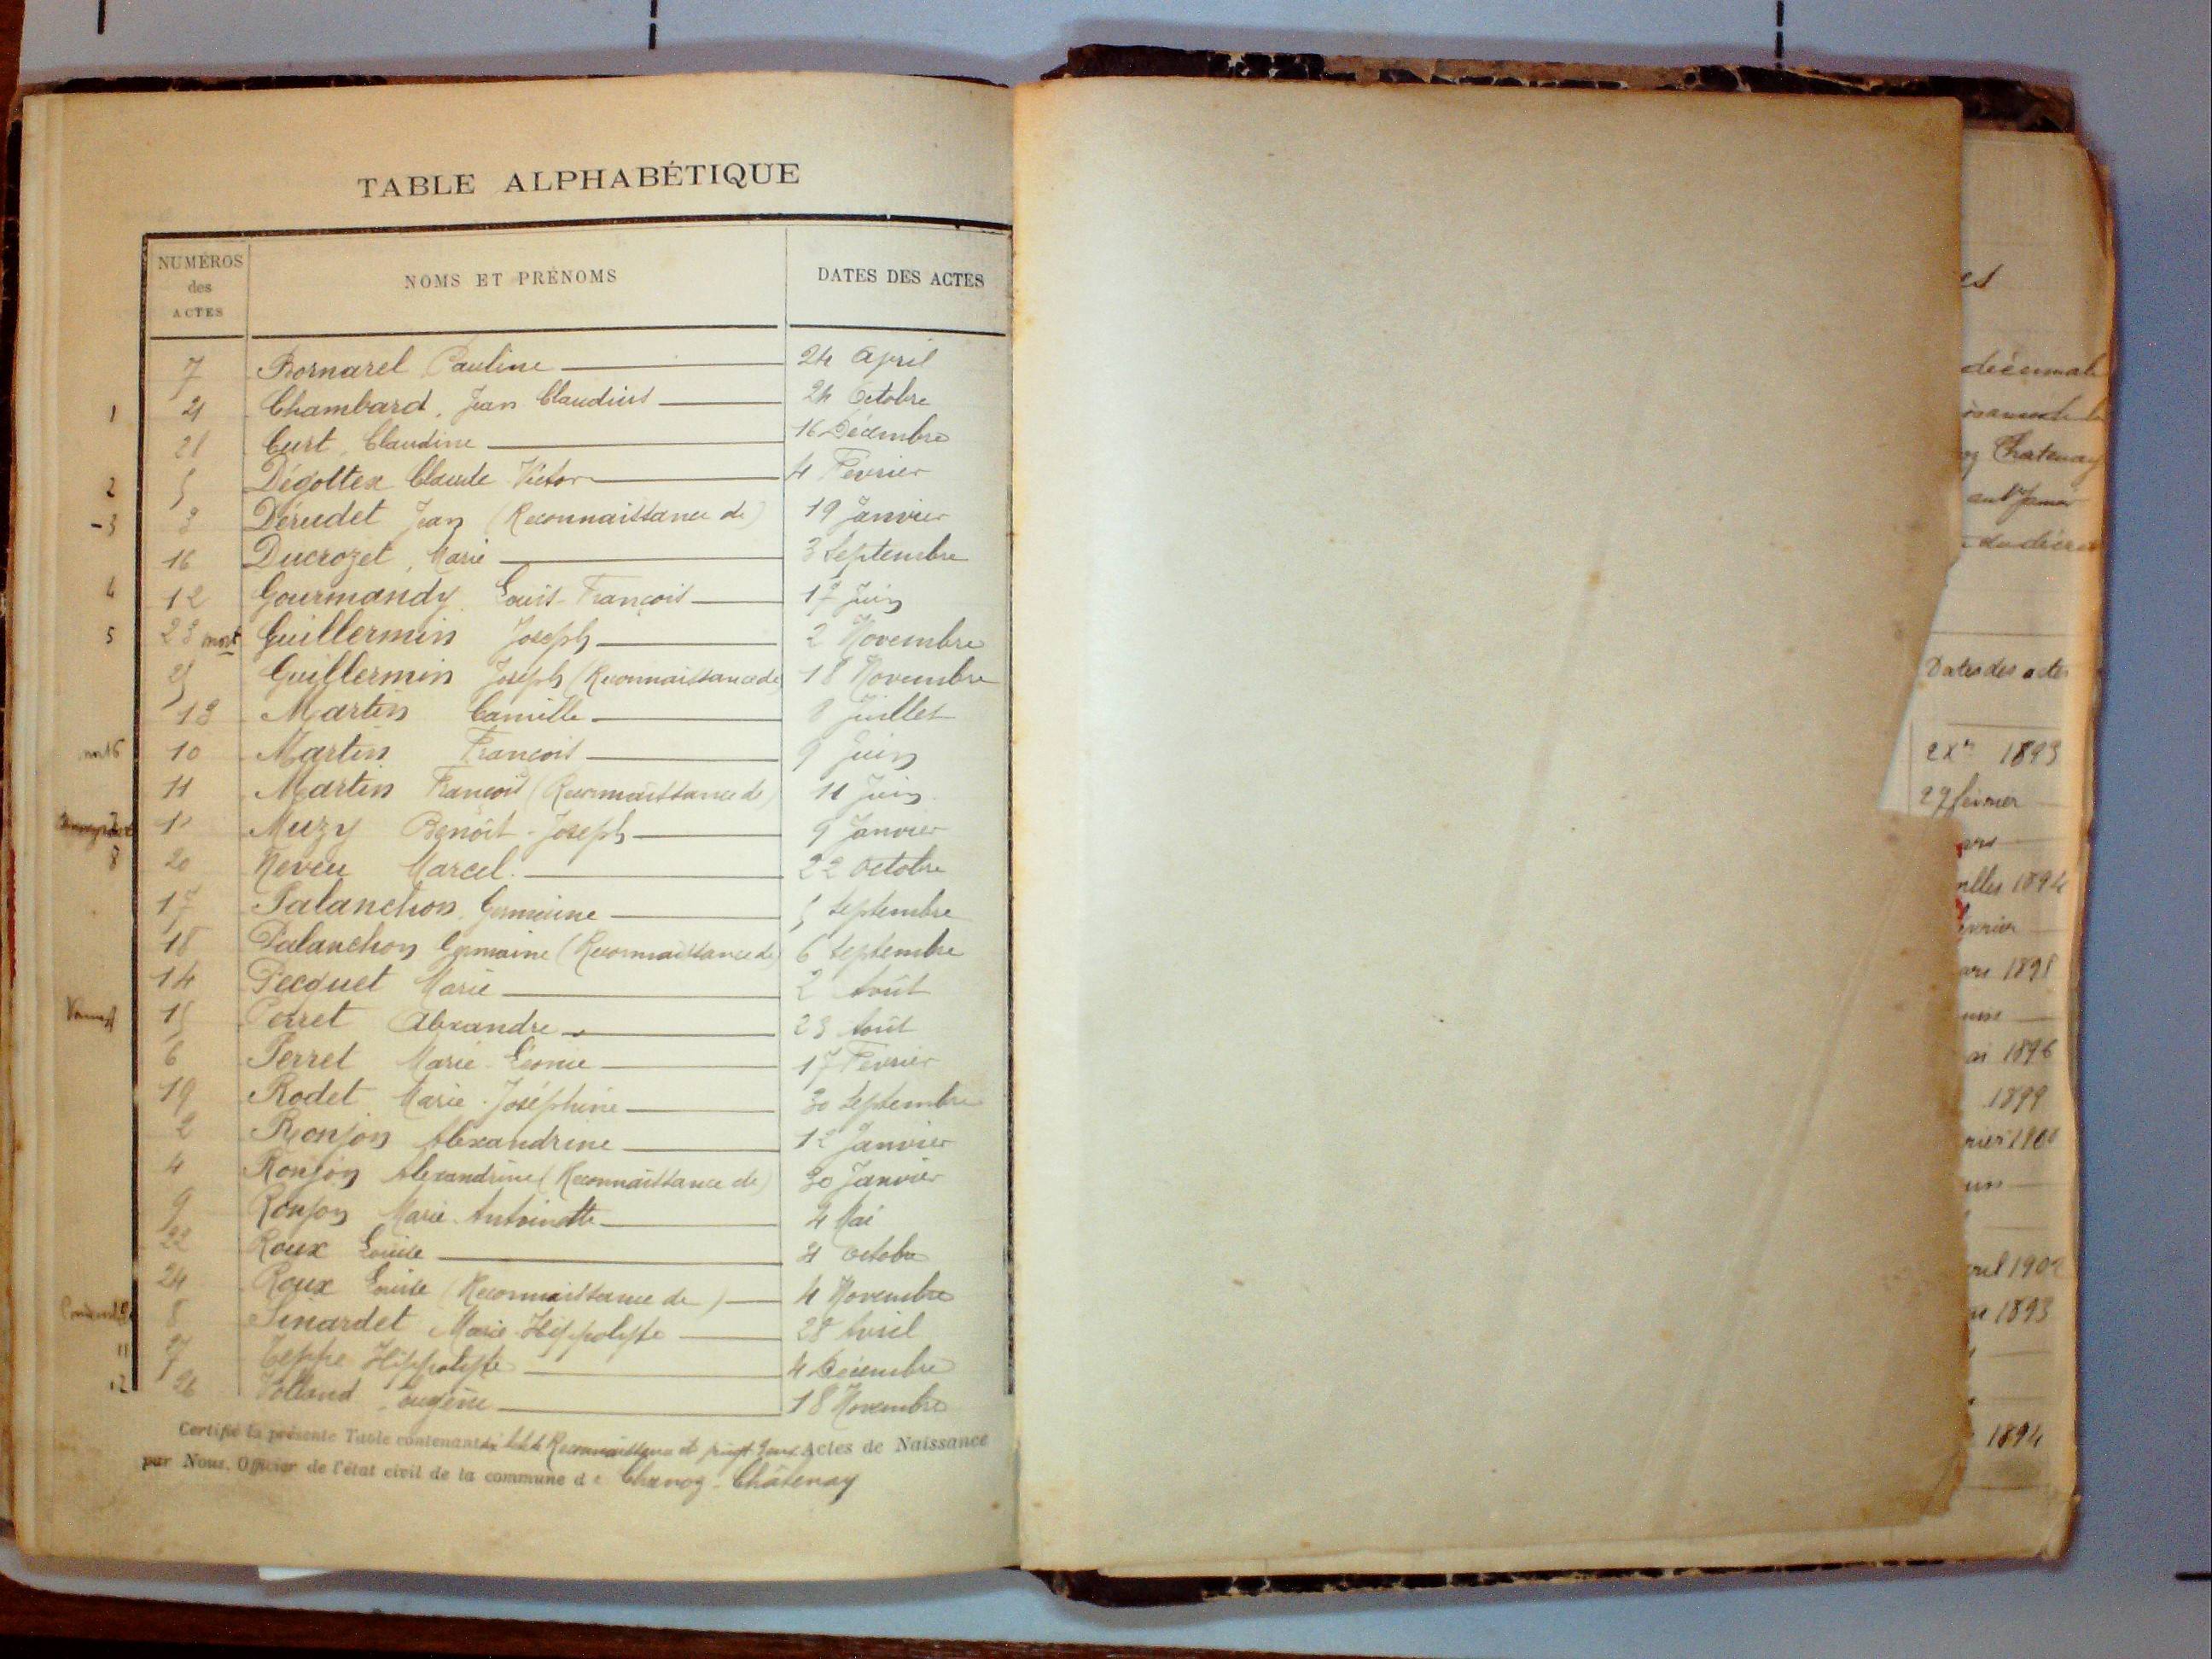 TABLE ALPHABÉTIQUE
NUMÉROS des ACTES NOMS ET PRÉNOMS DATES DES ACTES
7 Bornarel Pauline 24 April
1 21 Chambard, Jean Claudius 24 Octobre
28 Curt, Claudine 16 Décembre
2 5 Dégottex Claude Victor 4 Février
-3 3 Dérudet Jean (Reconnaissance de) 19 Janvier
16 Ducrozet, Marie 3 Septembre
4 12 Gourmandy Louis-François 17 Juin
5 23 mort Guillermin Joseph 2 Novembre
25 Guillermin Joseph (Reconnaissance de 18 Novembre
13 Martin Camille 8 Juillet
mort 6 10 Martin François 9 Juin
11 Martin François (Reconnaissance de) 11 Juin
7 1 Muzy Benoît-Joseph 9 Janvier
8 20 Neveu Marcel 22 Octobre
17 Palanchon Germaine 5 Septembre
18 Palanchon Germaine (Reconnaissance de) 6 Septembre
14 Pecquet Marie 2 Août
15 Perret Alexandre 23 Août
6 Perret Marie-Léonie 17 Février
19 Rodet Marie-Joséphine 30 Septembre
2 Ronjon Alexandrine 12 Janvier
4 Ronjon Alexandrine (Reconnaissance de) 30 Janvier
9 Ronjon Marie-Antoinette 4 Mai
22 Roux Louise 31 Octobre
24 Roux Louise (Reconnaissance de) 4 Novembre
8 Sinardet Marie-Hippolyte 28 Avril
11 27 Teppe Hippolyte 4 Décembre
12 26 Volland Eugène 18 Novembre
Certifié la présente Table contenant Reconnaissance et vingt deux Actes de Naissance
par Nous, Officier de l'état civil de la commune de Chanoz-Châtenay
Chatenay
Dates des actes
1893
29 février
1894
1898
1896
1899
1902
1893
1894